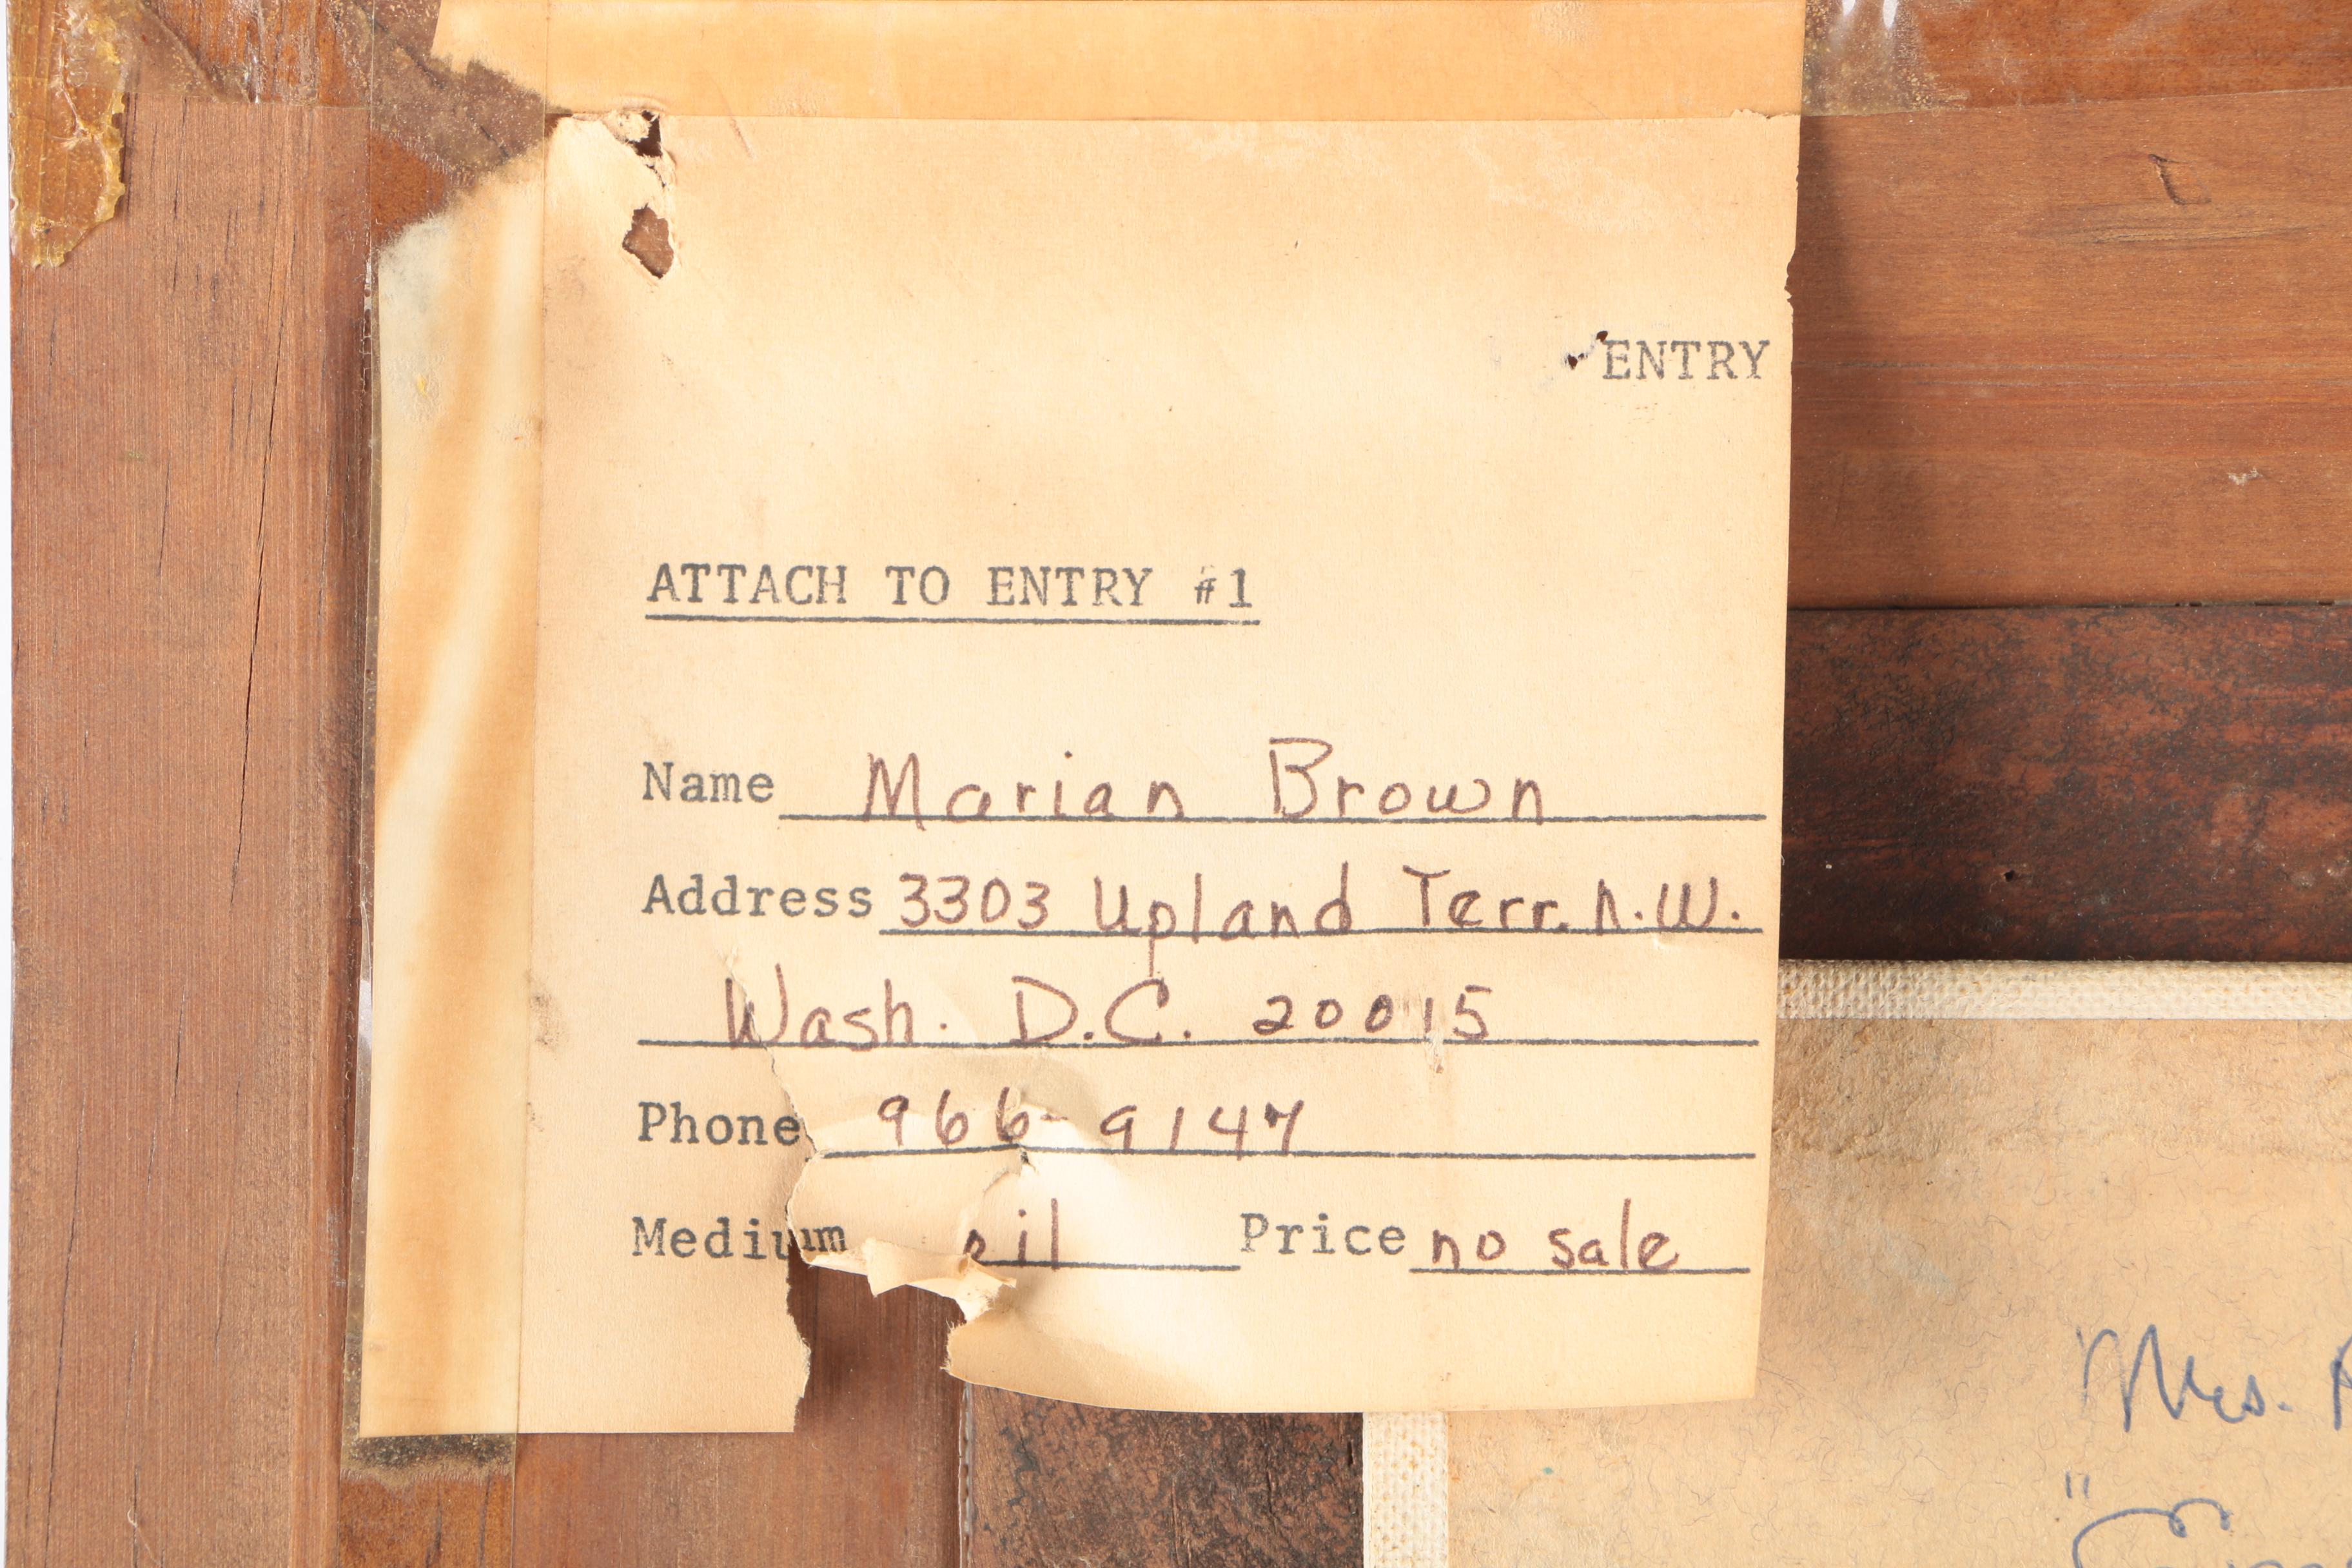 ENTRY
ATTACH TO ENTRY #1
Name Marian Brown
Address 3303 Upland Terr. N.W.
Wash. D.C. 20015
Phone 966-9147
Medium oil Price no sale
Mrs.